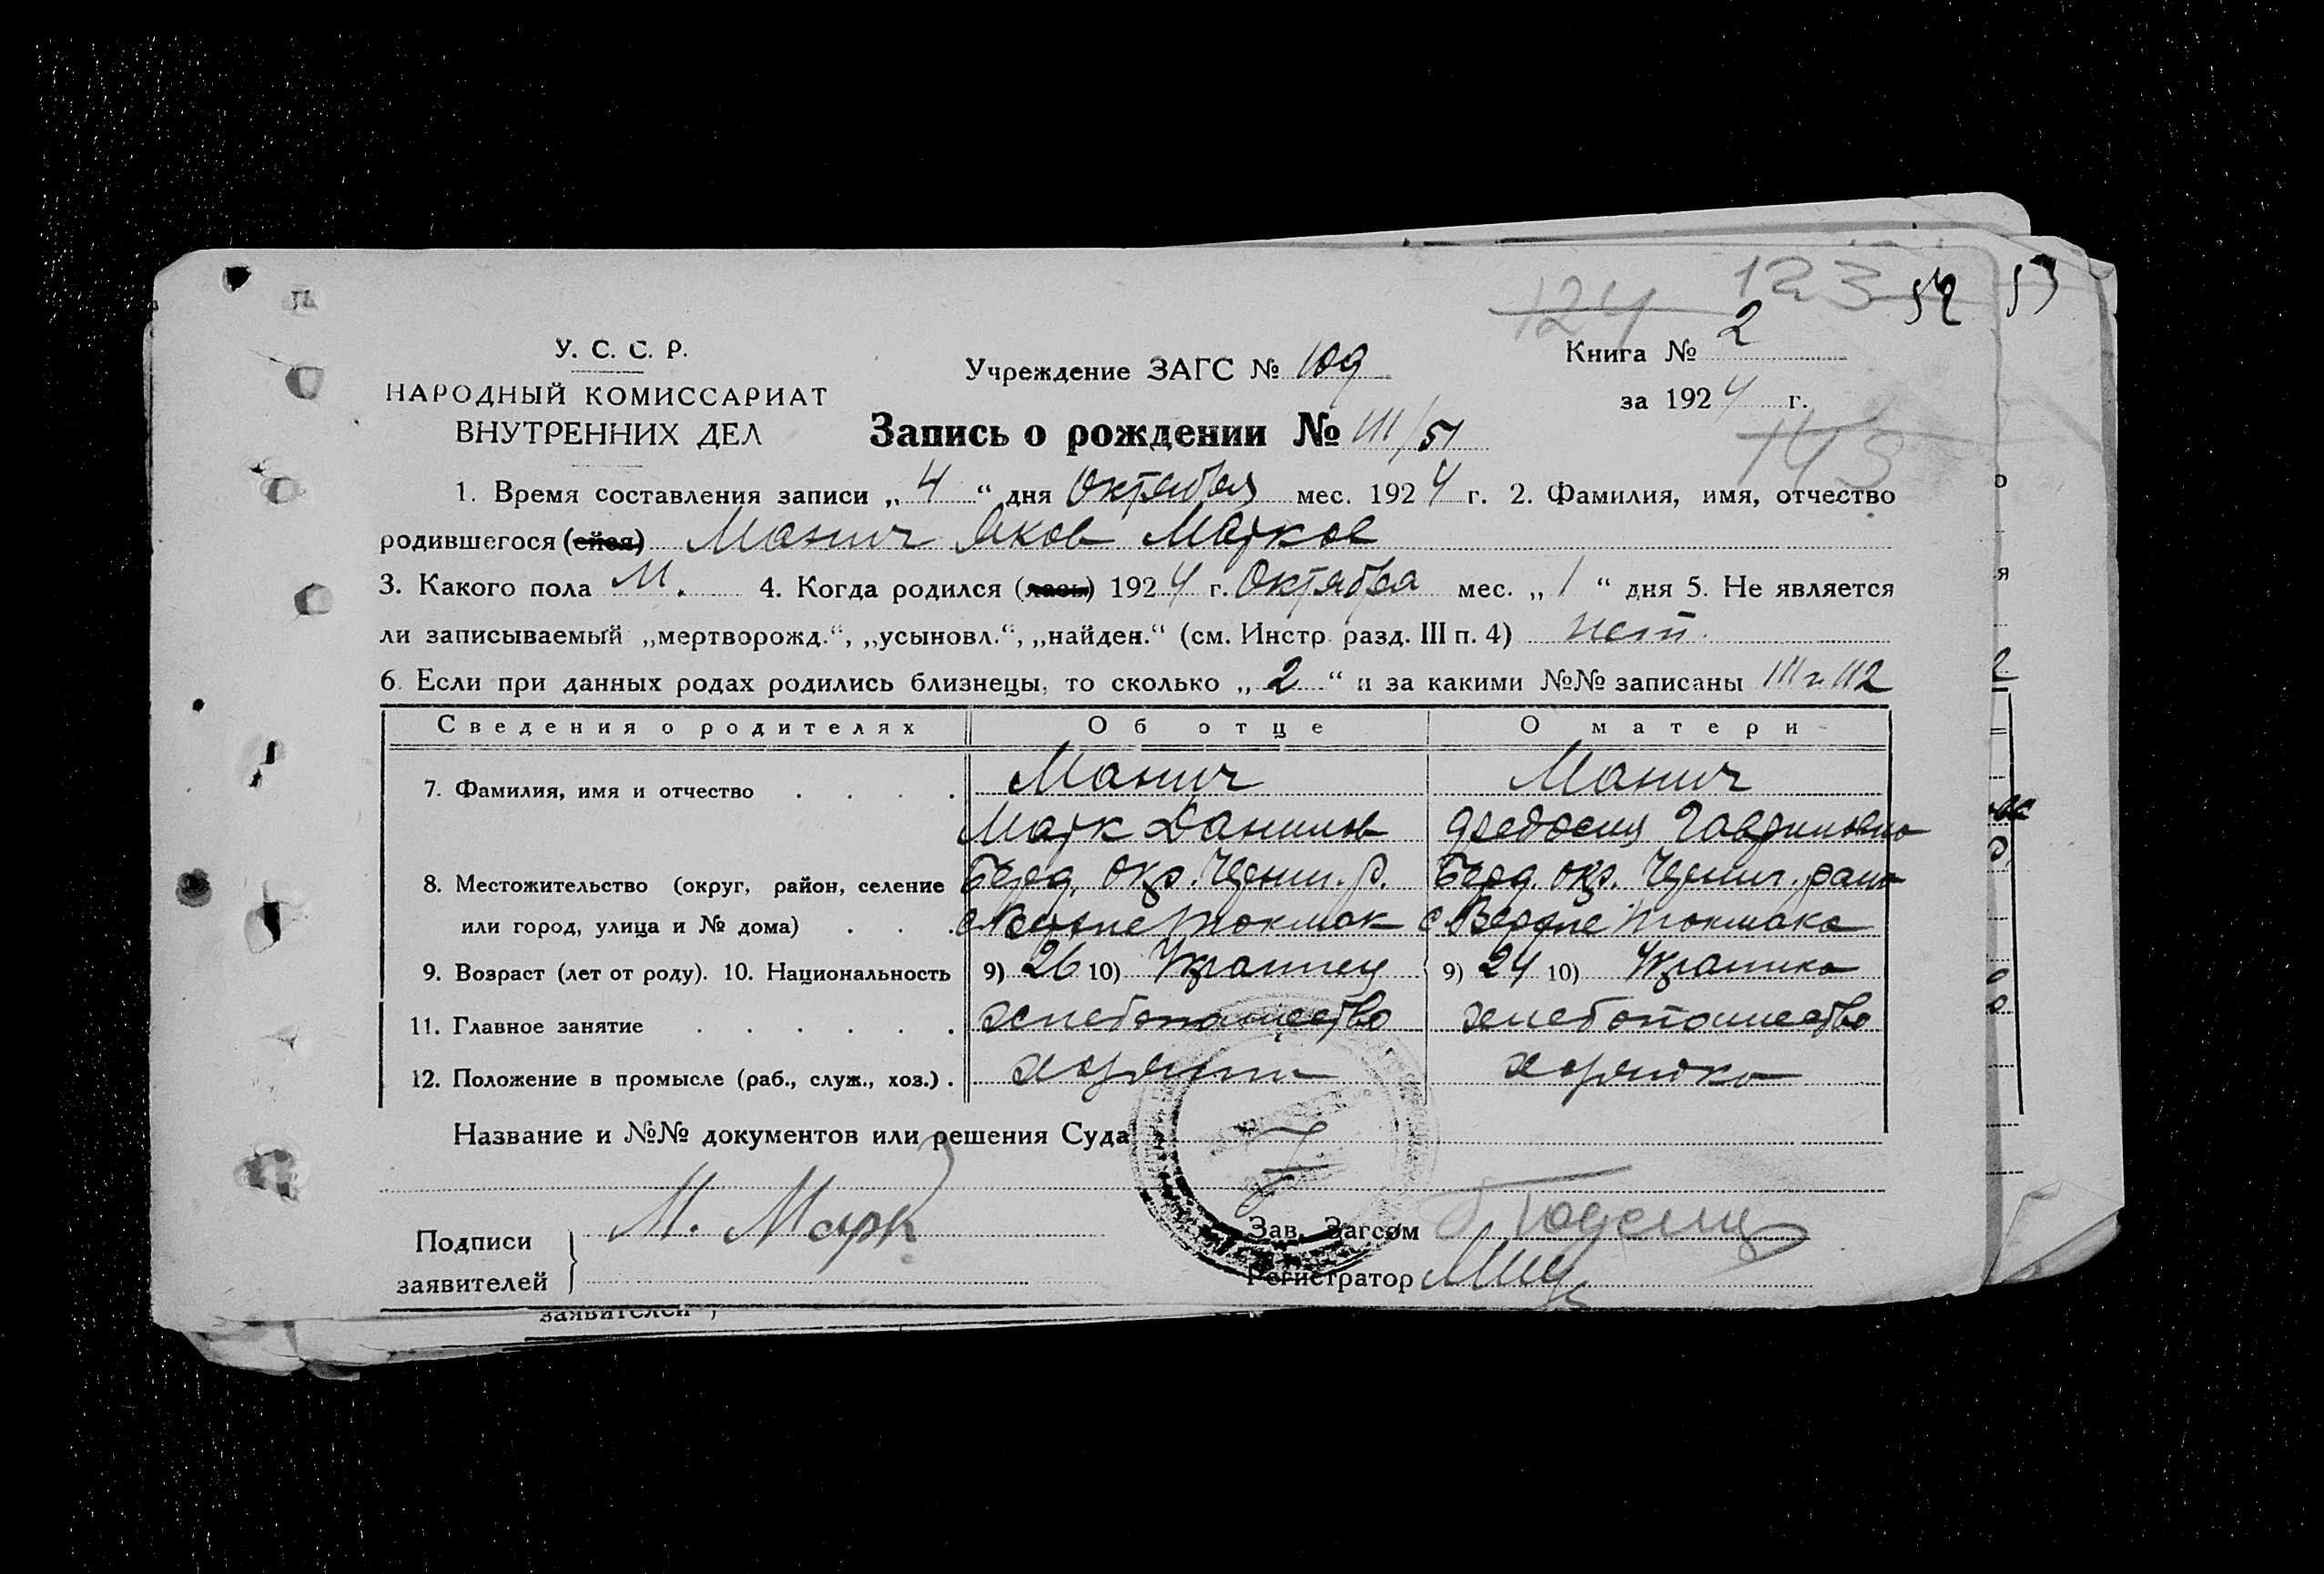 124 123 52 53
У. С. С. Р.
НАРОДНЫЙ КОМИССАРИАТ
ВНУТРЕННИХ ДЕЛ
Учреждение ЗАГС № 109
Книга № 2
за 1924 г.
143
Запись о рождении № 111/51
1. Время составления записи „4“ дня Октября мес. 1924 г. 2. Фамилия, имя, отчество
родившегося (ейся) Манич Яков Марков
3. Какого пола М. 4. Когда родился (лась) 1924 г. Октября мес. „1“ дня 5. Не является
ли записываемый „мертворожд.“, „усыновл.“, „найден.“ (см. Инстр. разд. III п. 4) нет.
6. Если при данных родах родились близнецы, то сколько „2“ и за какими №№ записаны 111 и 112
Сведения о родителях Об отце О матери
7. Фамилия, имя и отчество . . . . Манич Манич
Марк Данилов Феодосия Гавриловна
8. Местожительство (округ, район, селение Берд. окр. р. Берд. окр.
или город, улица и № дома) . . . Токмак с Токмака
9. Возраст (лет от роду). 10. Национальность 9) 26 10) Украинец 9) 24 10) Украинка
11. Главное занятие . . . . . . хлебопашество хлебопашество
12. Положение в промысле (раб., служ., хоз.) . хозяин хозяйка
Название и №№ документов или решения Суда
Подписи
заявителей
М. Марк
Зав. Загсом
Регистратор
заявителей